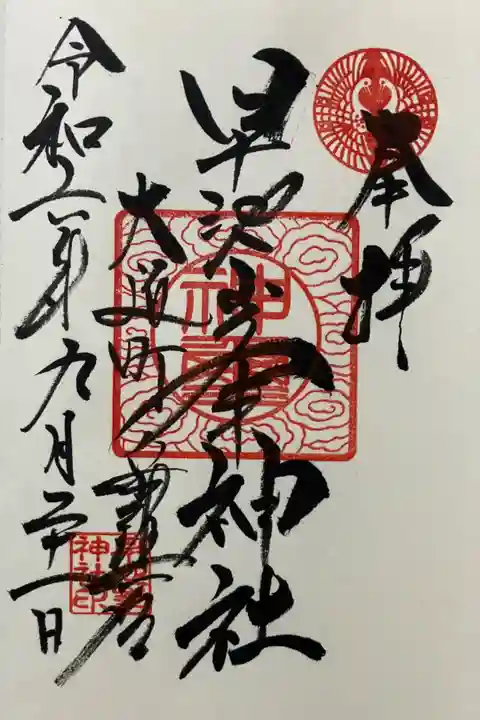 奉拝
早池峯神社
大迫町
令和二年九月二十一日
神社印